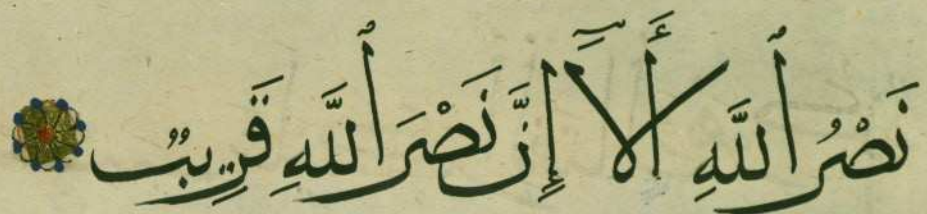 نَصْرُ ٱللَّهِ أَلَآ إِنَّ نَصْرَ ٱللَّهِ قَرِيبٌ